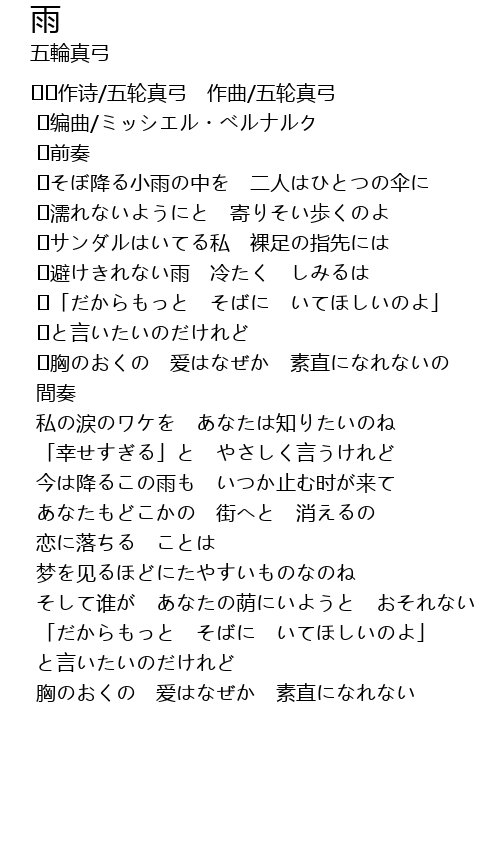 雨
五輪真弓
作诗/五轮真弓　作曲/五轮真弓
编曲/ミッシエル・ベルナルク
前奏
そぼ降る小雨の中を　二人はひとつの伞に
濡れないようにと　寄りそい歩くのよ
サンダルはいてる私　裸足の指先には
避けきれない雨　冷たく　しみるは
「だからもっと　そばに　いてほしいのよ」
と言いたいのだけれど
胸のおくの　爱はなぜか　素直になれないの
間奏
私の涙のワケを　あなたは知りたいのね
「幸せすぎる」と　やさしく言うけれど
今は降るこの雨も　いつか止む时が来て
あなたもどこかの　街へと　消えるの
恋に落ちる　ことは
梦を见るほどにたやすいものなのね
そして谁が　あなたの荫にいようと　おそれない
「だからもっと　そばに　いてほしいのよ」
と言いたいのだけれど
胸のおくの　爱はなぜか　素直になれない